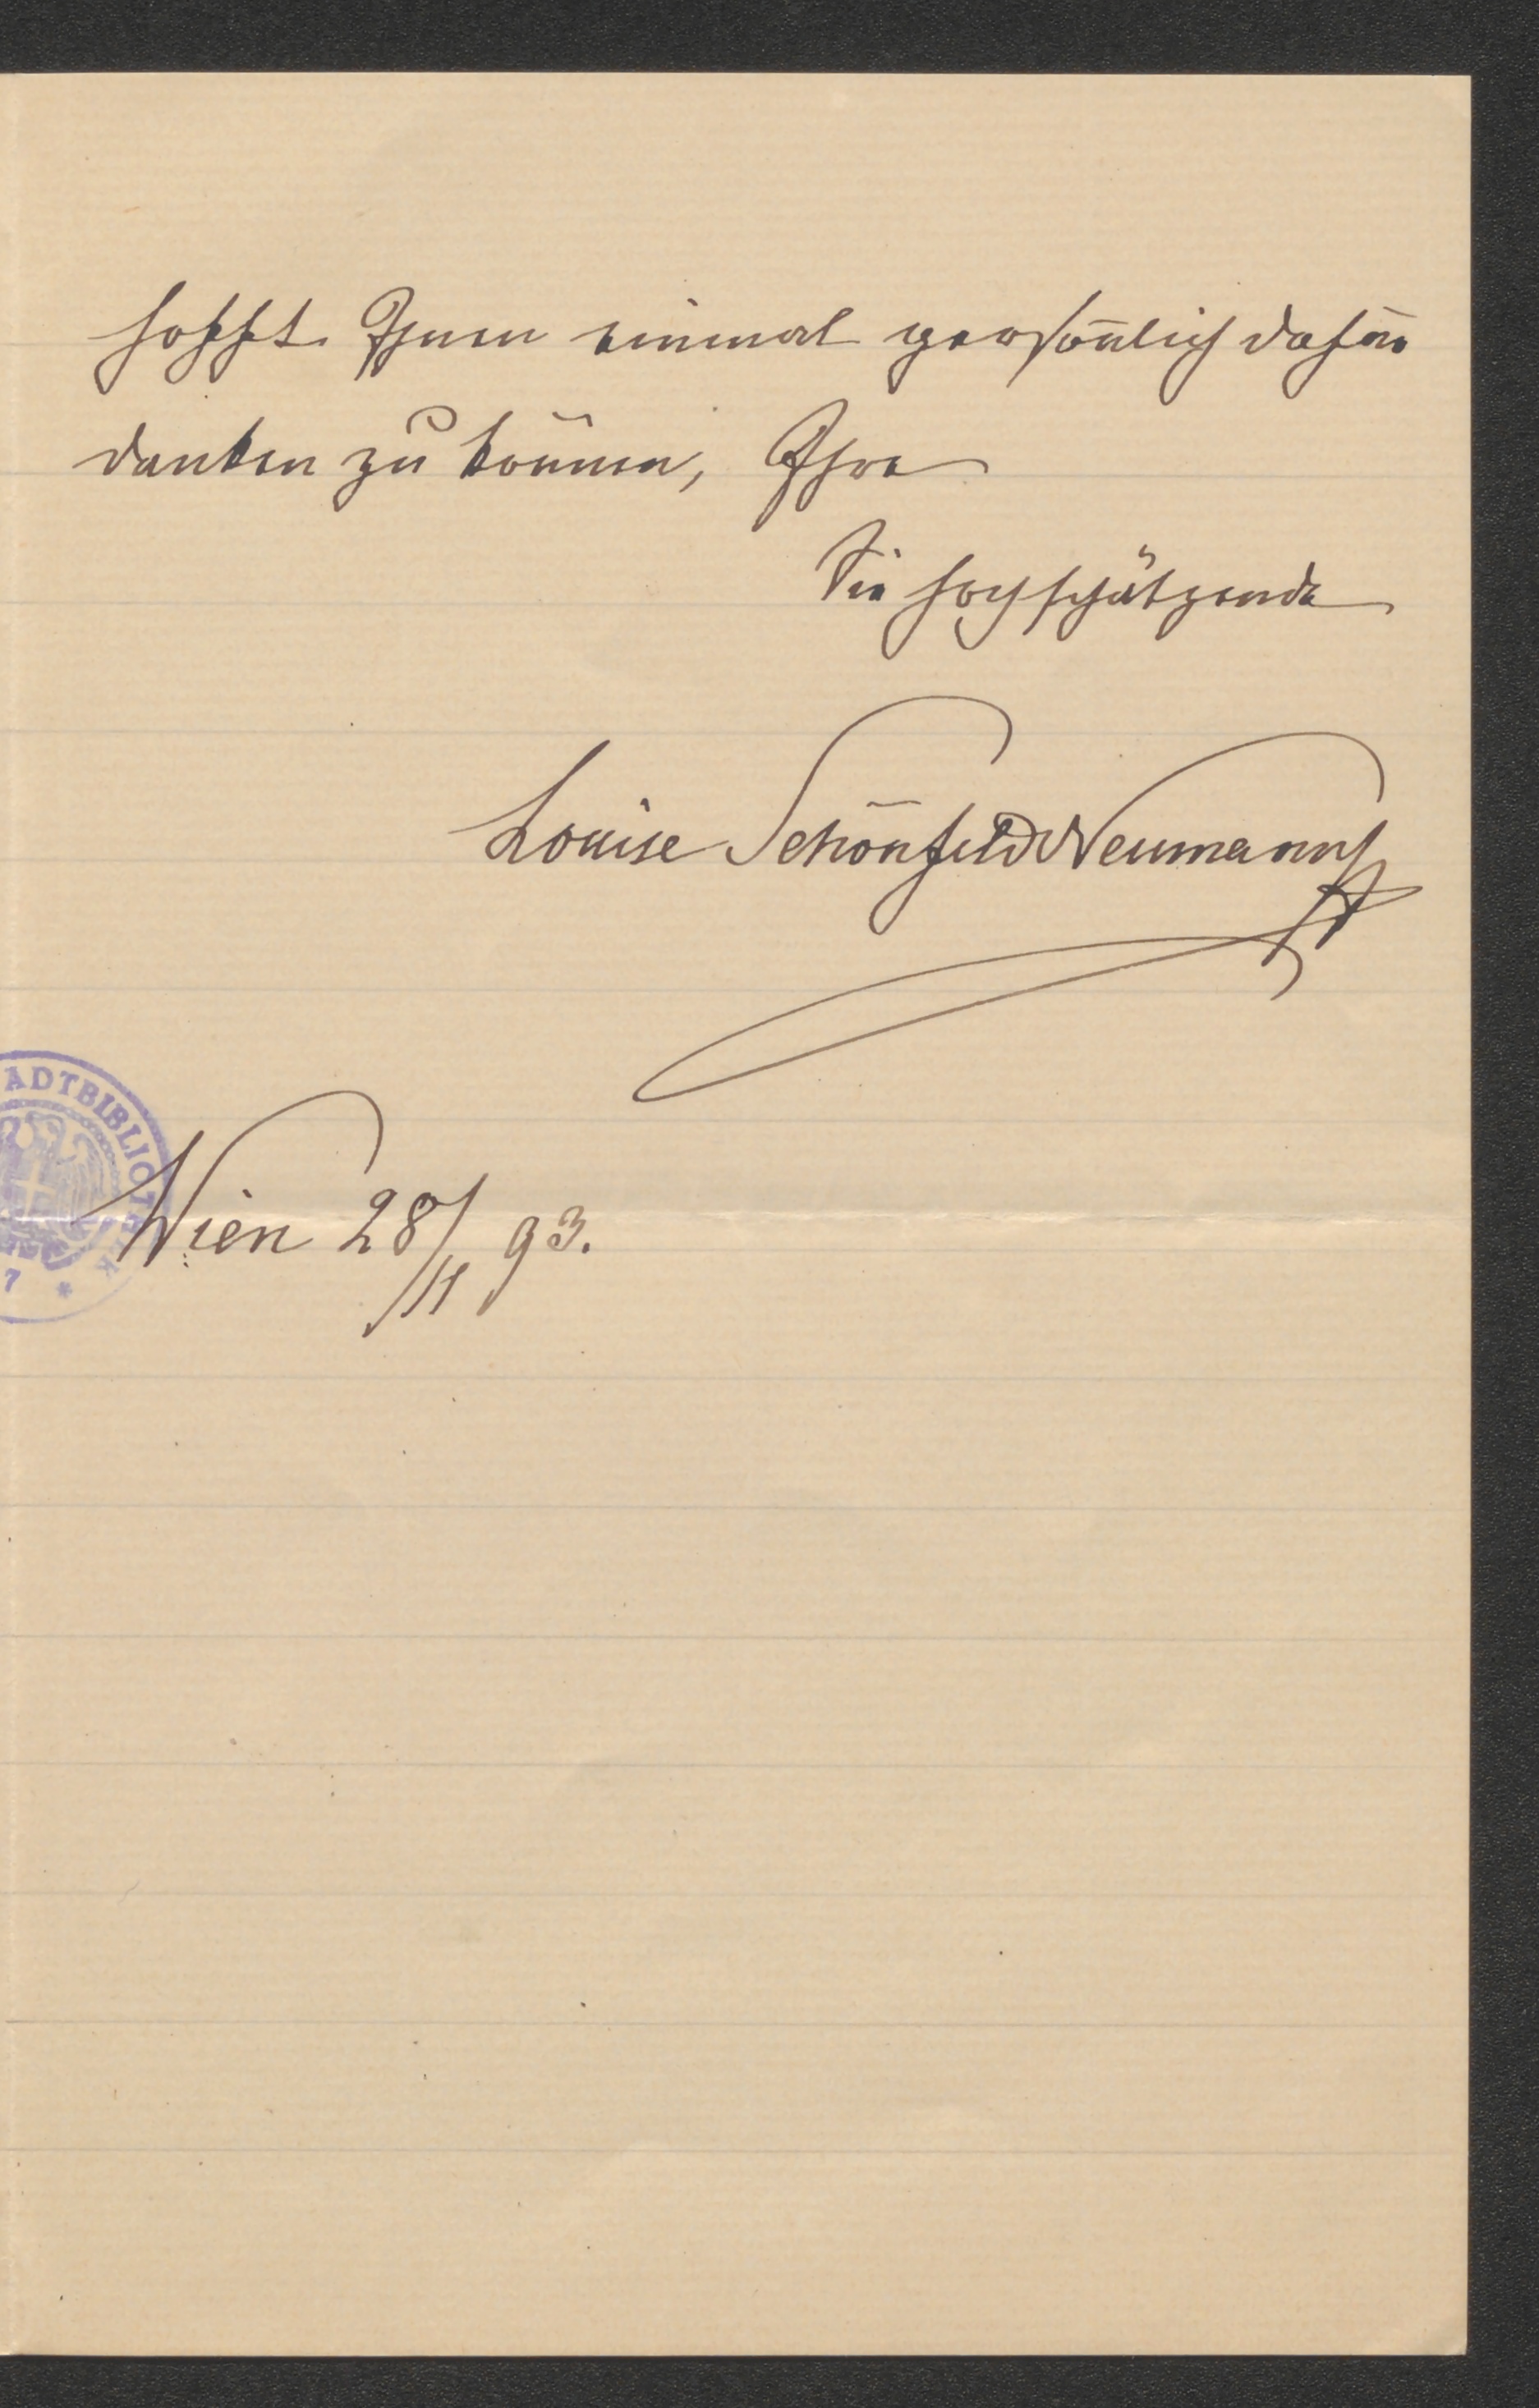 hofft Ihnen einmal persönlich dafür
danken zu können, Ihre
Sie hochschätzende
Louise Schönfeld Neumann
ADTBIBLIOTHEK
7 *
Wien 28/11 93.